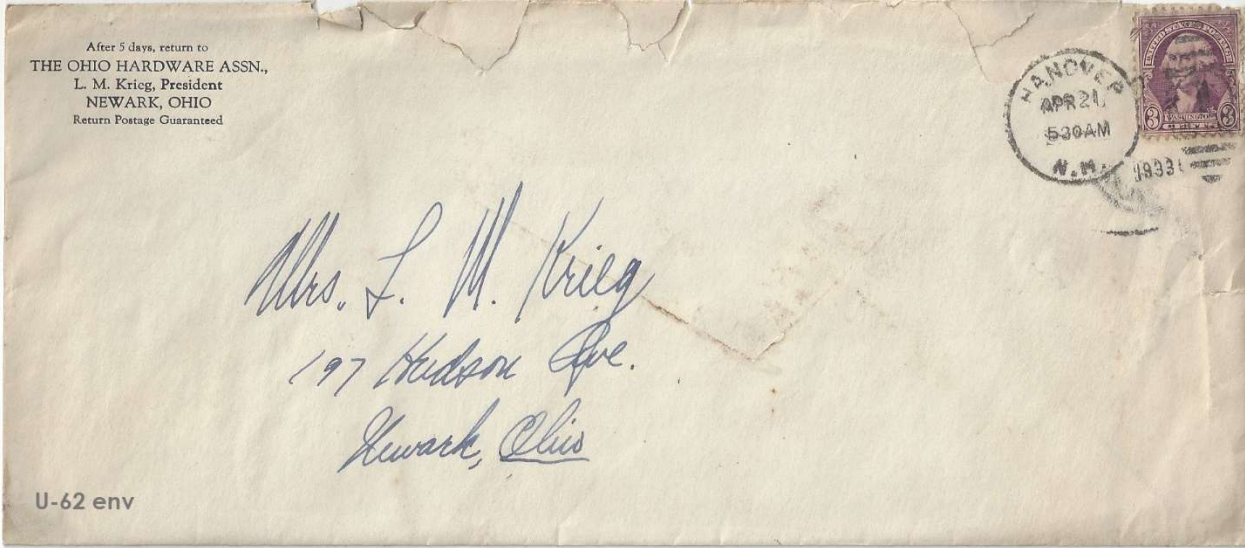 After 5 days, return to
THE OHIO HARDWARE ASSN.,
L. M. Krieg, President
NEWARK, OHIO
Return Postage Guaranteed
UNITED STATES POSTAGE
3 3
HANOVER
APR 21
530AM
N.H.
1933
Mrs. L. M. Krieg
197 Hudson Ave.
Newark, Ohio
U-62 env